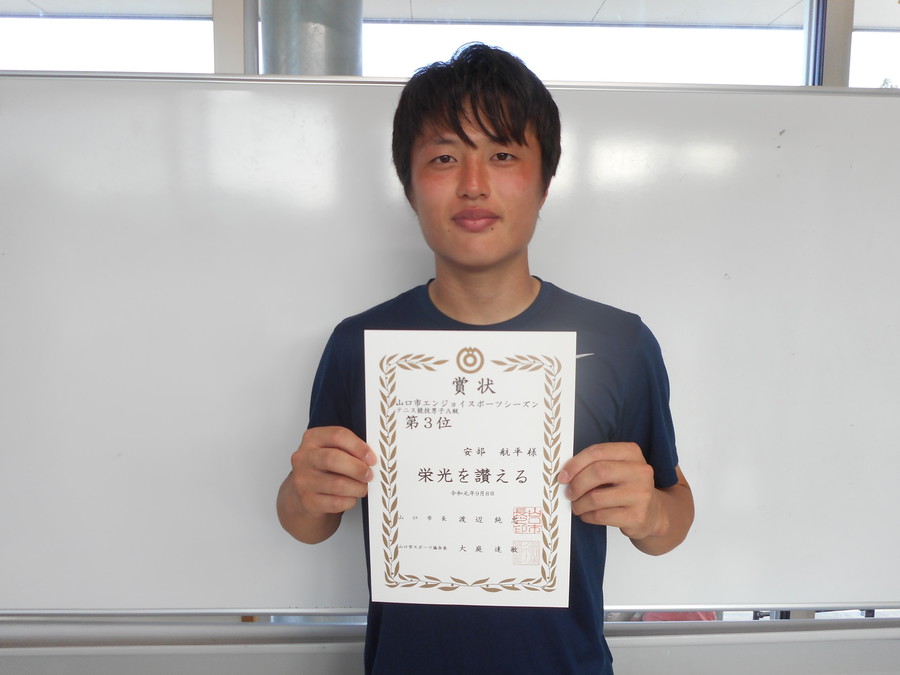 賞状
山口市エンジョイスポーツシーズン
テニス競技男子A級
第3位
安部 航平様
栄光を讃える
令和元年9月8日
山口市長 渡辺純忠
山口市スポーツ協会長 大庭達敏
山口市長之印